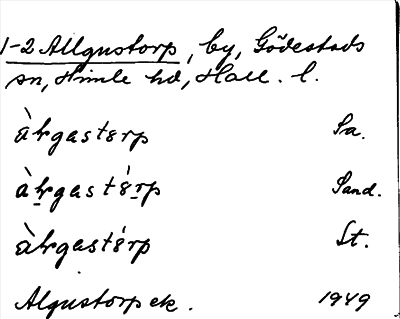 1-2 Allgustorp, by, Gödestads
sn, Himle hd, Hall. l.
àlrgastɛrp Sa.
àlrgastɛ́rp Sand.
àlrgastɛ́rp St.
Algustorp ek. 1949